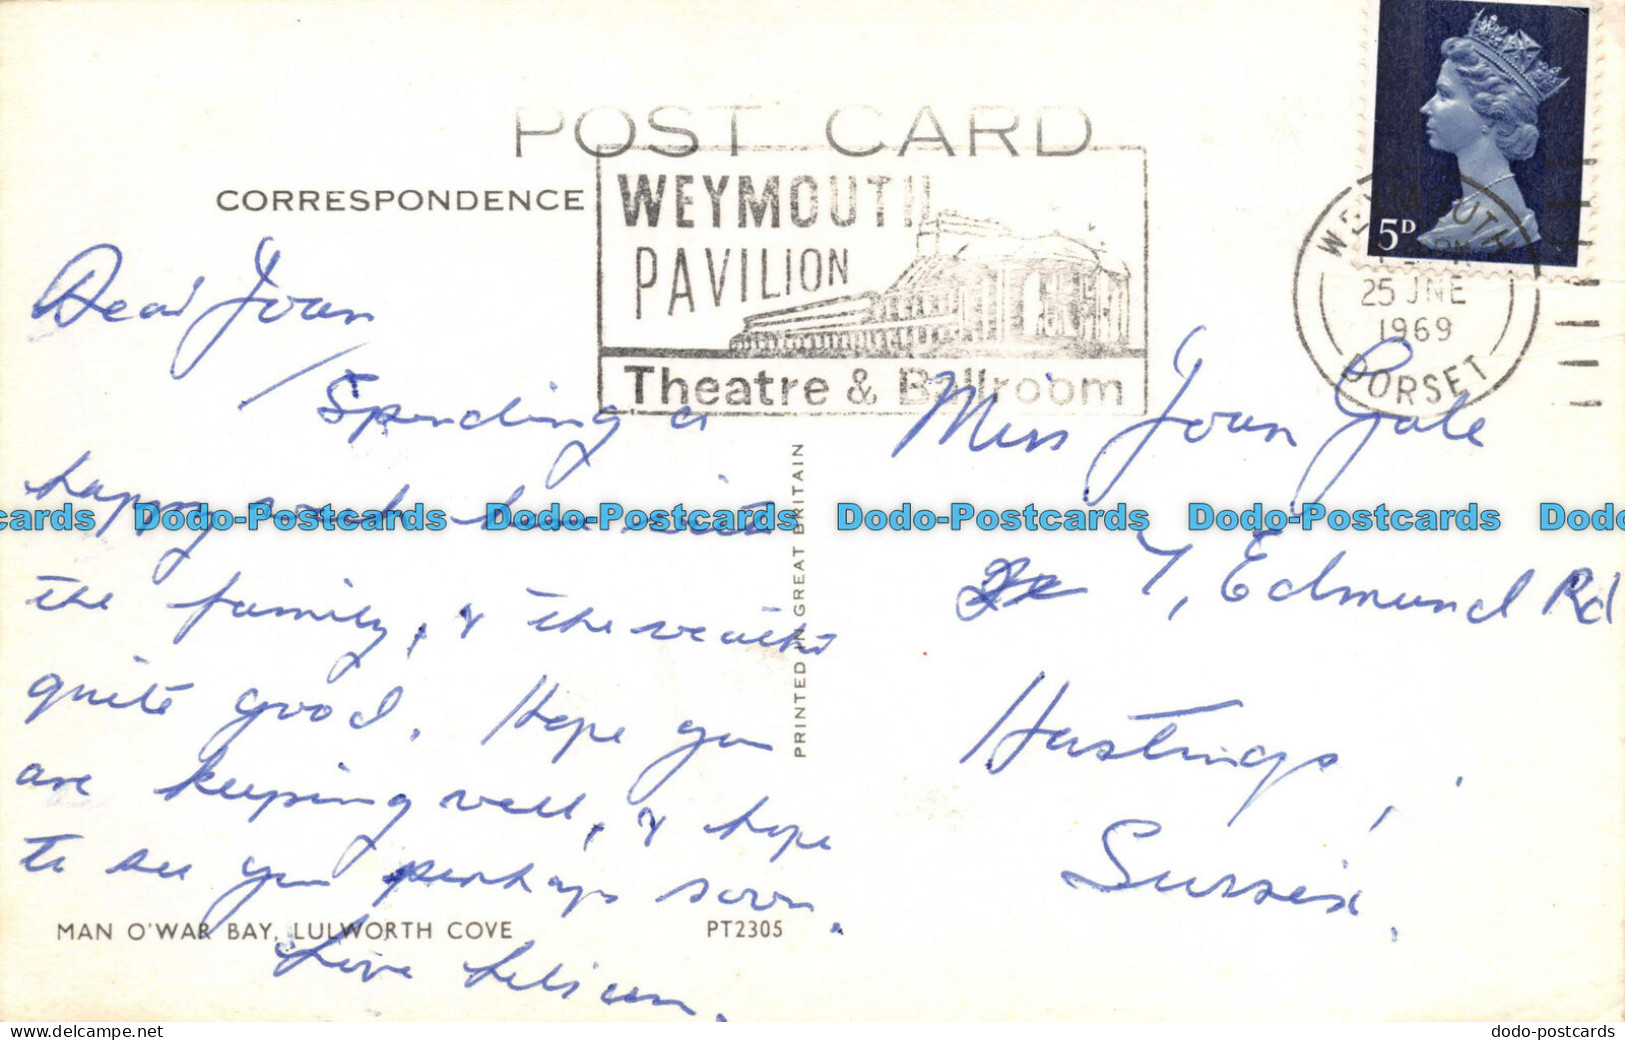 POST CARD
CORRESPONDENCE
WEYMOUTH
PAVILION
Theatre & Ballroom
5D
WEYMOUTH
PM
25 JNE
1969
DORSET
Dear Joan
Spending a
happy week here with
the family, & the weather
quite good. Hope you
are keeping well, & hope
to see you perhaps soon.
Love
MAN O'WAR BAY, LULWORTH COVE
PT2305
PRINTED IN GREAT BRITAIN
Miss Joan Gale
7, Edmund Rd
Hastings,
Sussex.
cards Dodo-Postcards Dodo-Postcards Dodo-Postcards Dodo-Postcards Dodo
www.delcampe.net
dodo-postcards